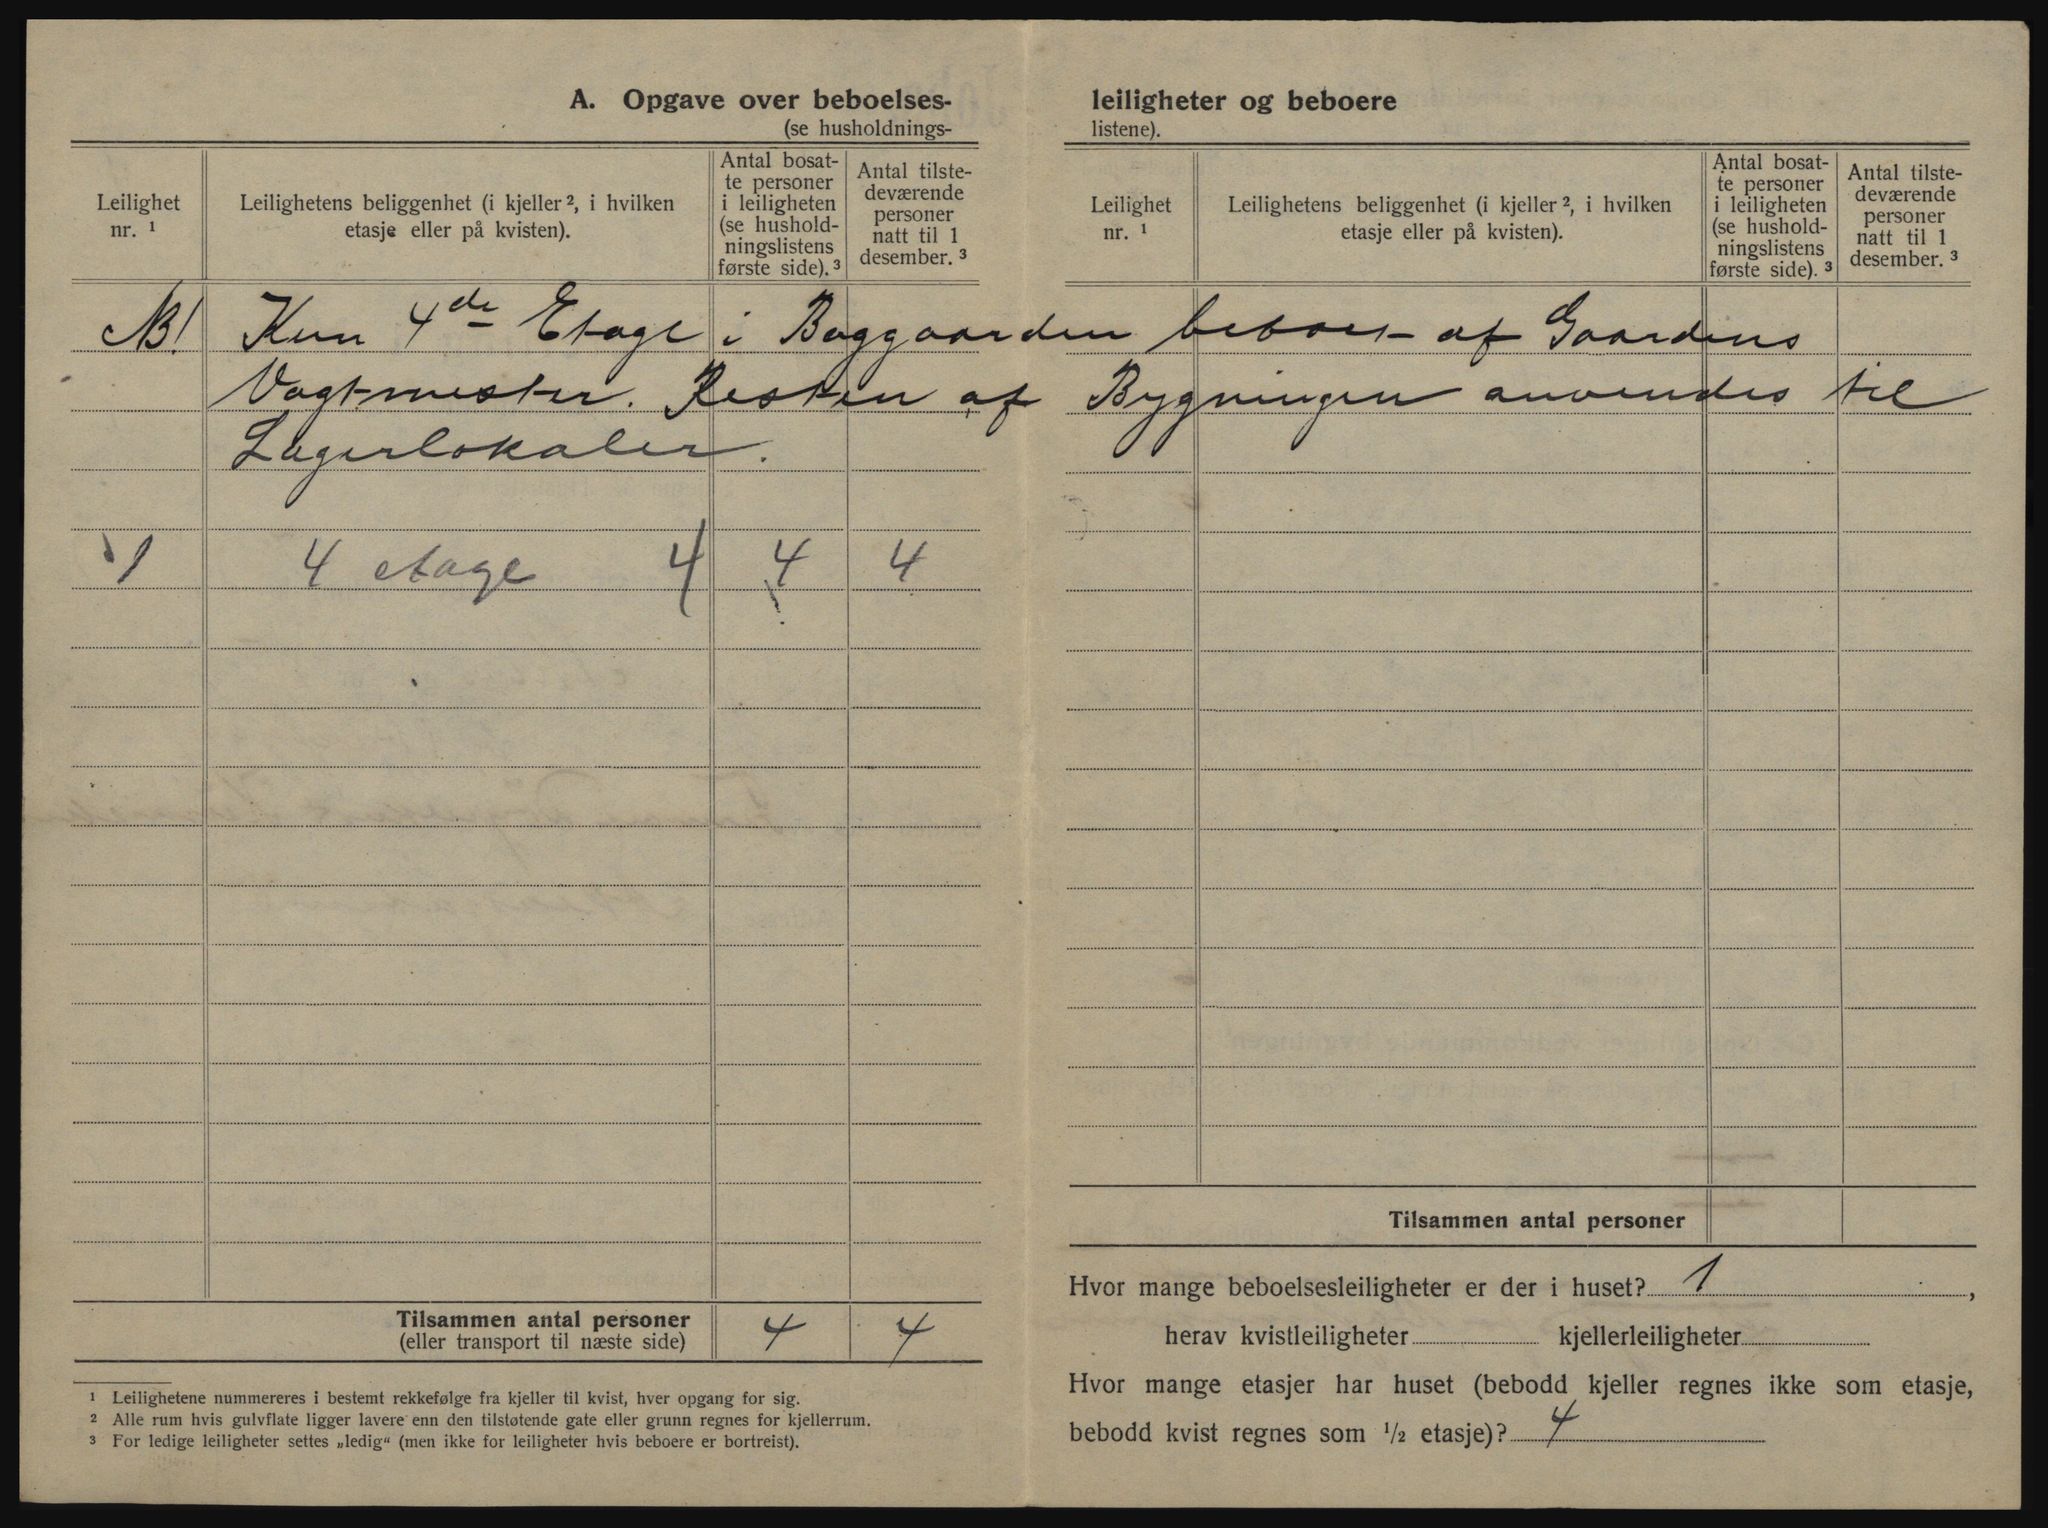 A. Opgave over beboelses- leiligheter og beboere
(se husholdnings- listene).
Leilighet nr. ¹
Leilighetens beliggenhet (i kjeller ², i hvilken etasje eller på kvisten).
Antal bosat-
te personer
i leiligheten
(se hushold-
ningslistens
første side). ³
Antal tilste-
deværende
personer
natt til 1
desember. ³
Leilighet nr. ¹
Leilighetens beliggenhet (i kjeller ², i hvilken etasje eller på kvisten).
Antal bosat-
te personer
i leiligheten
(se hushold-
ningslistens
første side). ³
Antal tilste-
deværende
personer
natt til 1
desember. ³
NB! Kun 4de Etage i Baggaarden beboes af Gaardens
Vagtmester. Resten af Bygningen anvendes til
Lagerlokaler.
1 4 etage 4 4 4
Tilsammen antal personer
(eller transport til næste side) 4 4
¹ Leilighetene nummereres i bestemt rekkefølge fra kjeller til kvist, hver opgang for sig.
² Alle rum hvis gulvflate ligger lavere enn den tilstøtende gate eller grunn regnes for kjellerrum.
³ For ledige leiligheter settes „ledig“ (men ikke for leiligheter hvis beboere er bortreist).
Tilsammen antal personer
Hvor mange beboelsesleiligheter er der i huset? 1 ,
herav kvistleiligheter kjellerleiligheter
Hvor mange etasjer har huset (bebodd kjeller regnes ikke som etasje,
bebodd kvist regnes som ½ etasje)? 4